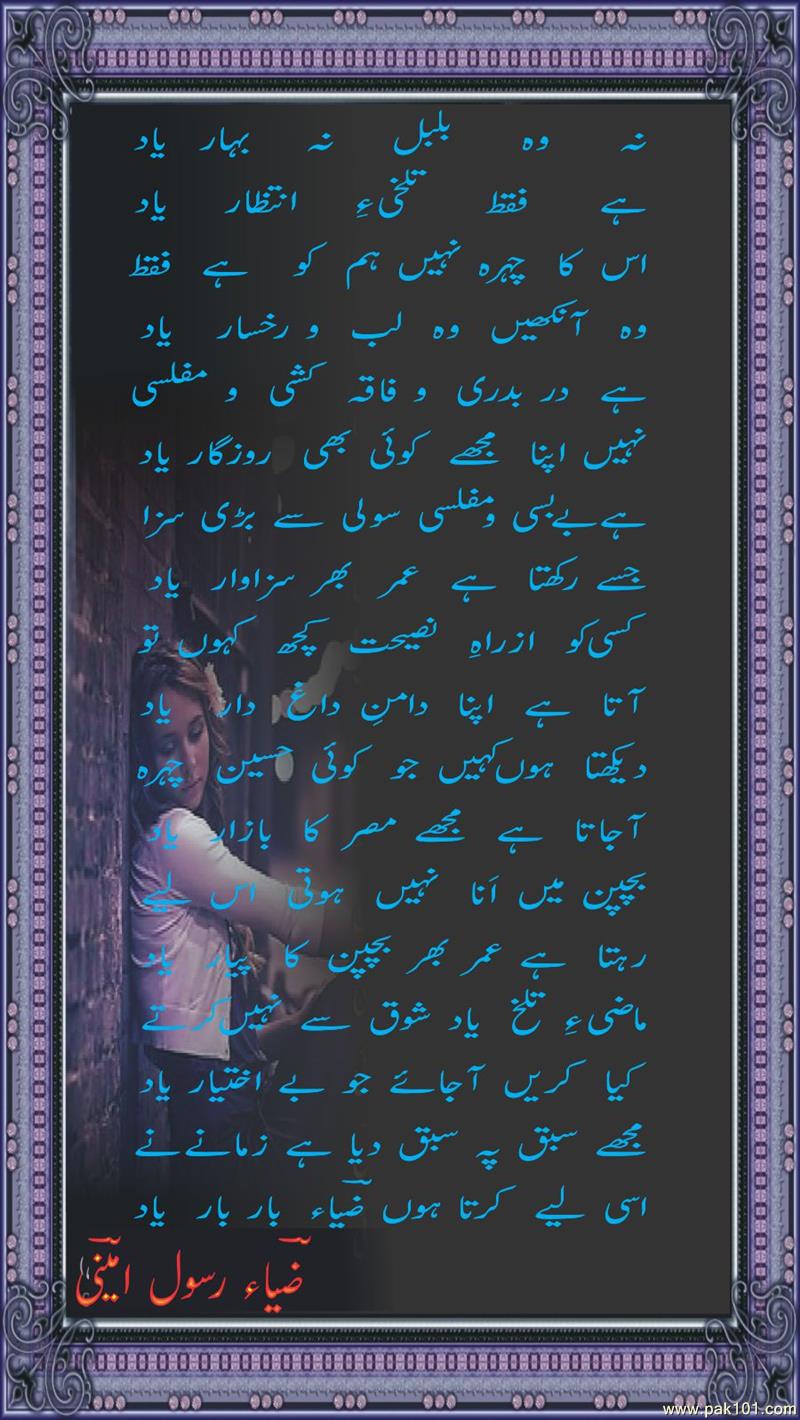 نہ وہ بلبل نہ بہار یاد
ہے فقط تلخیءِ انتظار یاد
اس کا چہرہ نہیں ہم کو ہے فقط
وہ آنکھیں وہ لب و رخسار یاد
ہے در بدری و فاقہ کشی و مفلسی
نہیں اپنا مجھے کوئی بھی روزگار یاد
ہے بےبسی ومفلسی سولی سے بڑی سزا
جسے رکھتا ہے عمر بھر سزاوار یاد
کسی کو ازراہِ نصیحت کچھ کہوں تو
آتا ہے اپنا دامنِ داغ دار یاد
دیکھتا ہوں کہیں جو کوئی حسین چہرہ
آجاتا ہے مجھے مصر کا بازار یاد
بچپن میں اَنا نہیں ہوتی اس لیے
رہتا ہے عمر بھر بچپن کا پیار یاد
ماضیءِ تلخ یاد شوق سے نہیں کرتے
کیا کریں آجائے جو بے اختیار یاد
مجھے سبق پہ سبق دیا ہے زمانے نے
اسی لیے کرتا ہوں ضیاء بار بار یاد
ضیاء رسول امینی
www.pak101.com